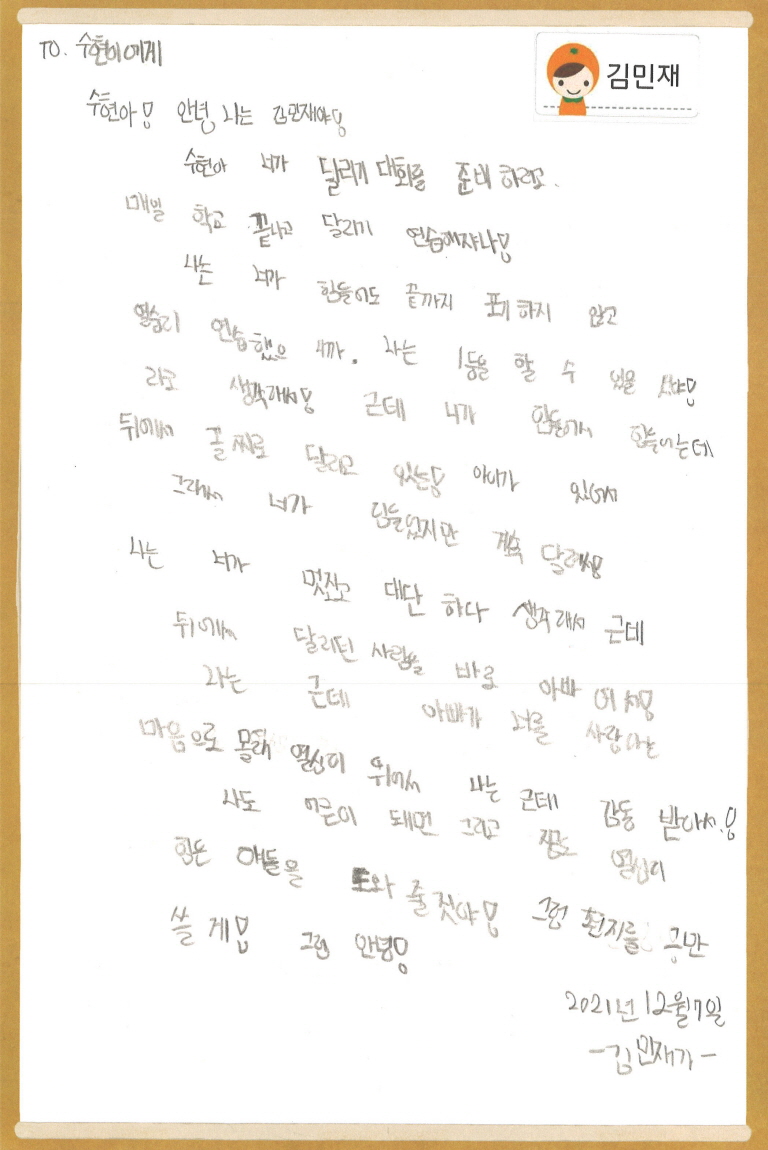 TO. 수현이에게
김민재
수현아! 안녕 나는 김민재야!
수현아 너가 달리기 대회를 준비 하려고.
매일 학교 끝나고 달리기 연습해쟈나!
나는 너가 힘들어도 끝까지 포기 하지 않고
열심히 연습했으니까. 나는 1등을 할 수 있을
라고 생각해써! 근데 너가 힘들어서 힘들어는데
뒤에서 꼴찌로 달리고 있는 아이가 있어서
그래서 너가 힘들었지만 계속 달려써!
나는 너가 멋지고 대단 하다 생각해서 근데
뒤에서 달리던 사람을 바로 아빠 여써!
나는 근데 아빠가 너를 사랑하는
마음으로 몰래 열심이 뛰어서 나는 근데 감동 받아서.!
나도 어른이 돼면 그리고 열심이
힘든 얘들을 도와 줄 것야! 그럼 편지를 그만
쓸 게! 그럼 안녕!
2021년 12월 7일
-김민재가-